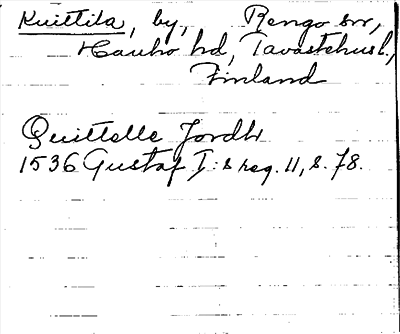 Kuittila, by, Rengo sn,
Hauho hd, Tavastehus l.,
Finland
Quittelle Jordh
1536 Gustaf I:s reg. 11, s. 78.